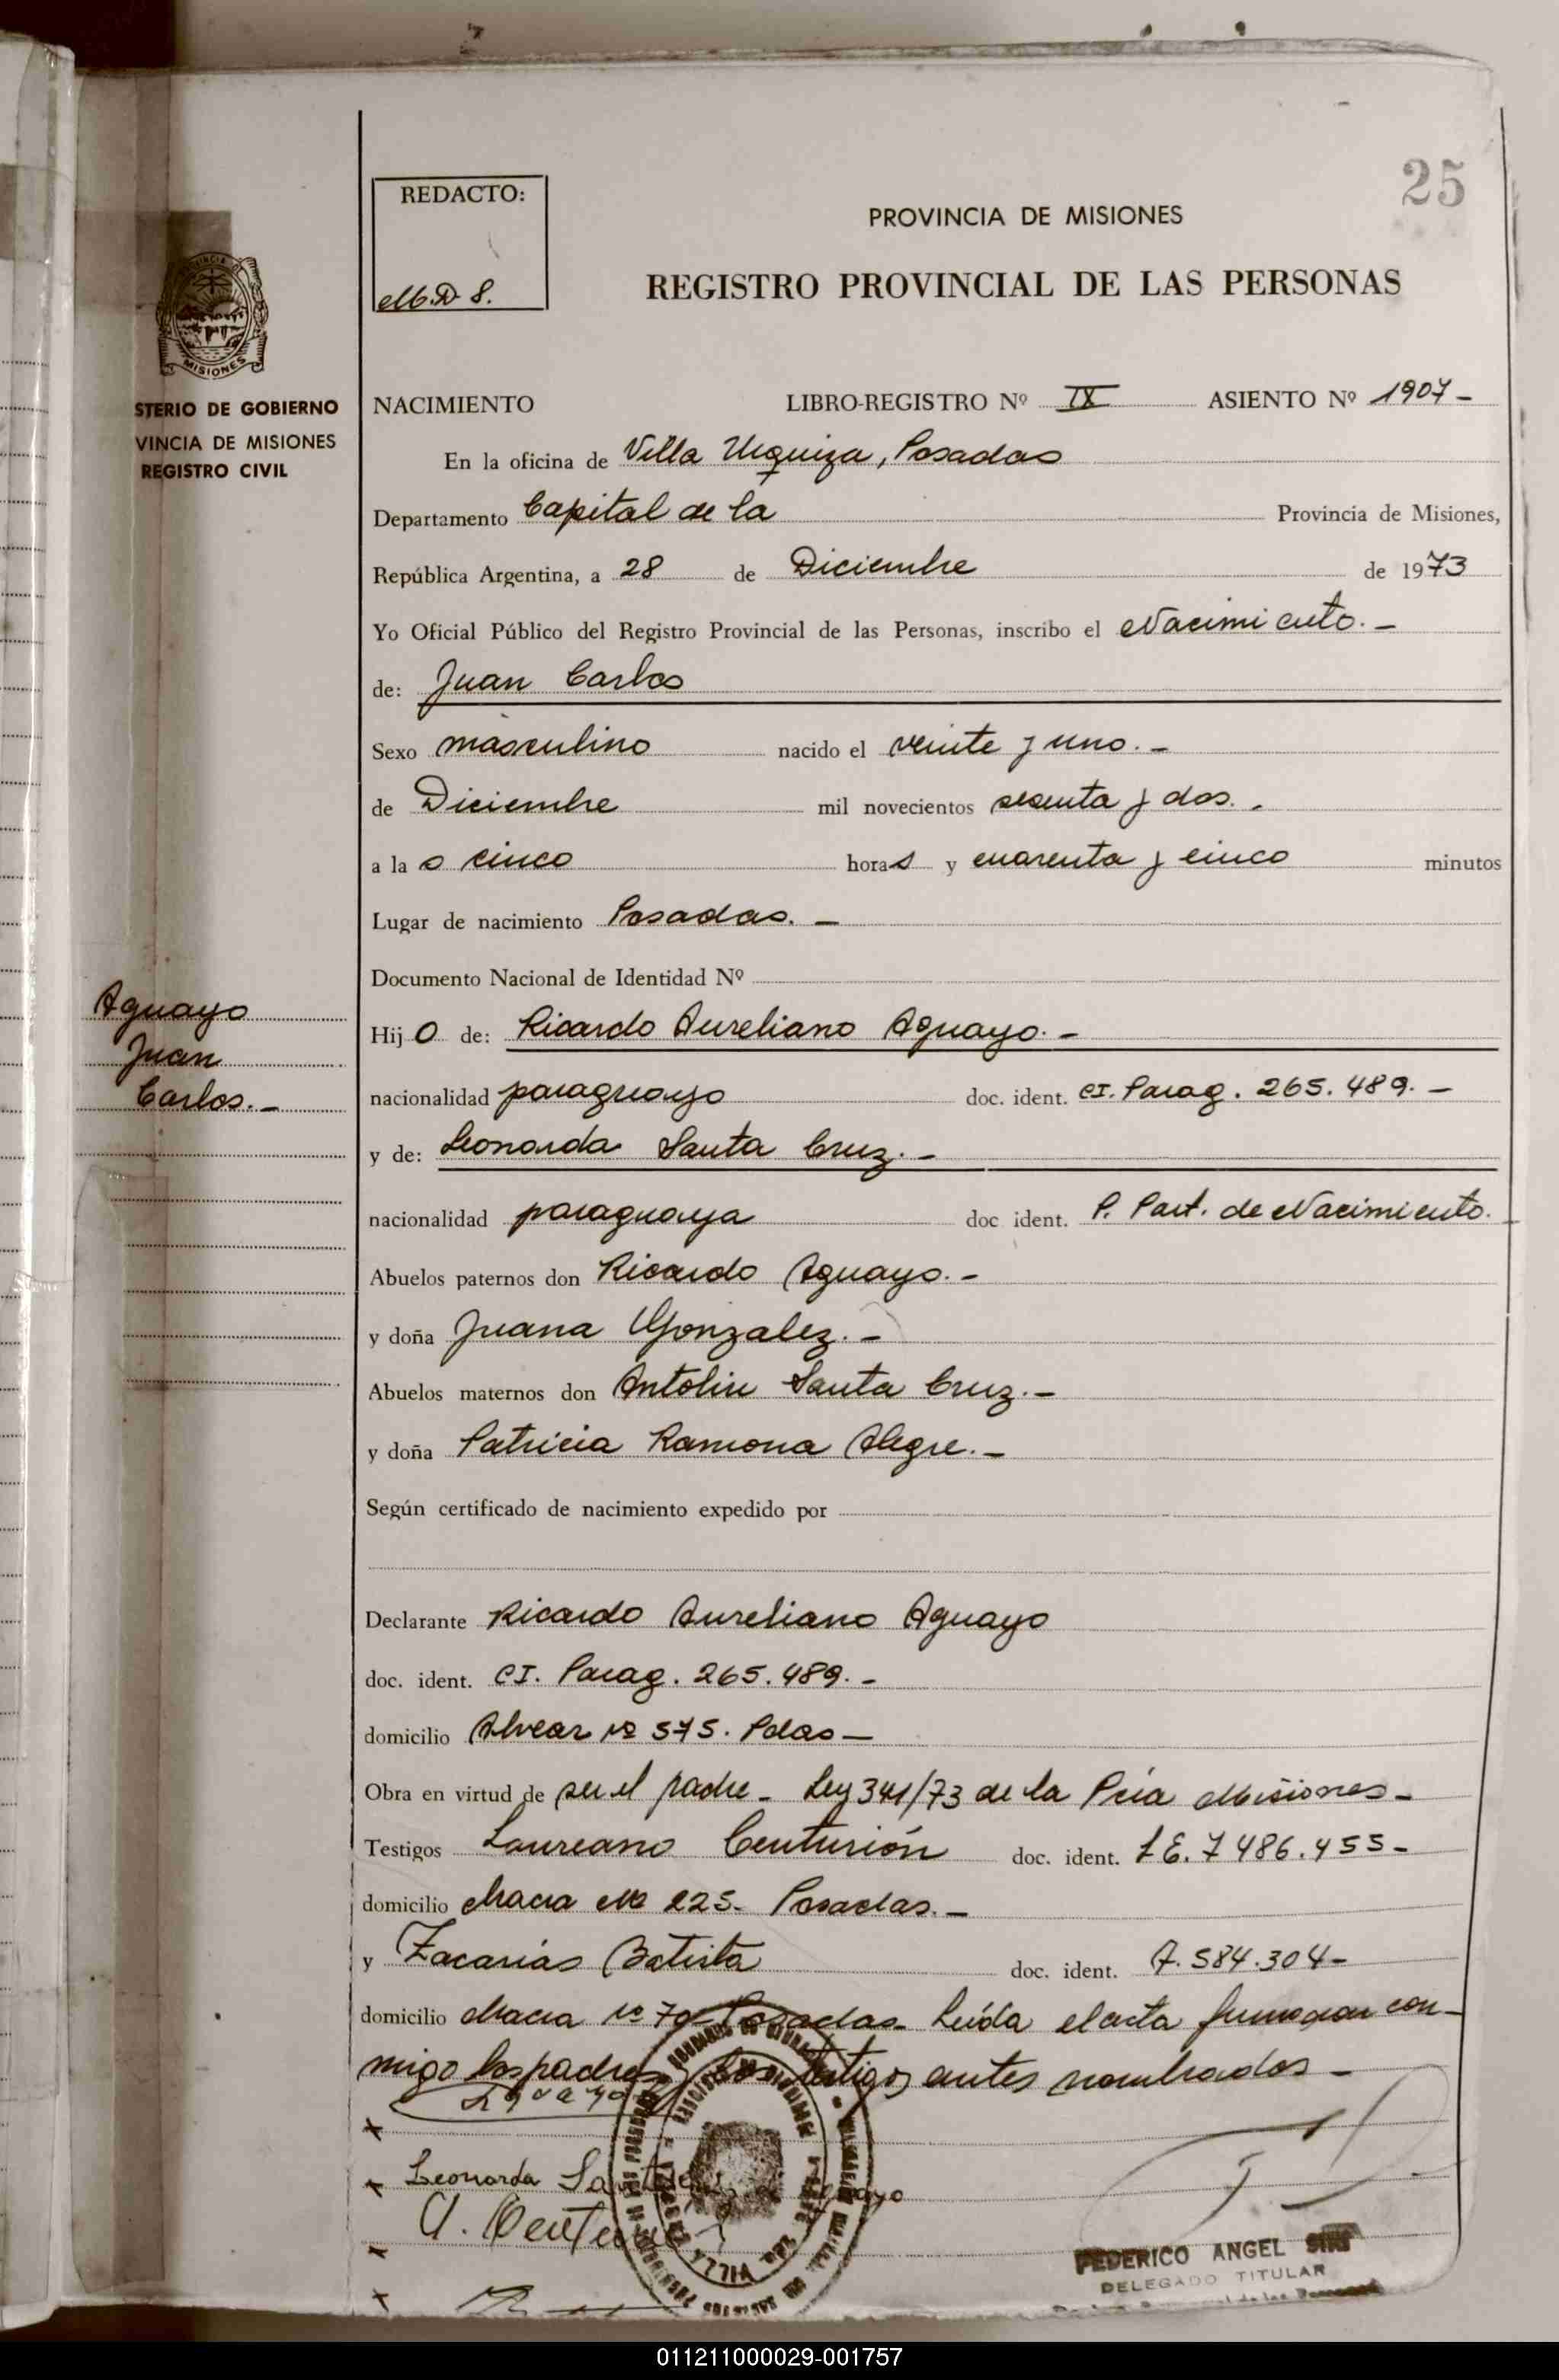 25
REDACTO:
PROVINCIA DE MISIONES
REGISTRO PROVINCIAL DE LAS PERSONAS
MISIONES
STERIO DE GOBIERNO
VINCIA DE MISIONES
REGISTRO CIVIL
NACIMIENTO LIBRO-REGISTRO Nº IX ASIENTO Nº 1907-
En la oficina de Villa Urquiza, Posadas
Departamento Capital de la Provincia de Misiones,
República Argentina, a 28 de Diciembre de 1973
Yo Oficial Público del Registro Provincial de las Personas, inscribo el Nacimiento.-
de: Juan Carlos
Sexo masculino nacido el veinte y uno.-
de Diciembre mil novecientos sesenta y dos.
a la s cinco horas y cuarenta y cinco minutos
Lugar de nacimiento Posadas.-
Documento Nacional de Identidad Nº
Aguayo
Juan
Carlos.-
Hijo de: Ricardo Aureliano Aguayo.-
nacionalidad paraguayo doc. ident. CI. Parag. 265.489.-
y de: Leonarda Santa Cruz.-
nacionalidad paraguaya doc ident. P. Part. de Nacimiento.
Abuelos paternos don Ricardo Aguayo.-
y doña Juana Gonzalez.-
Abuelos maternos don Antolin Santa Cruz.-
y doña Patricia Ramona Alegre.-
Según certificado de nacimiento expedido por
Declarante Ricardo Aureliano Aguayo
doc. ident. CI. Parag. 265.489.-
domicilio Alvear Nº 575. Pdas-
Obra en virtud de ser el padre- Ley 341/73 de la Pcia Misiones-
Testigos Laureano Centurión doc. ident. L E. 7 486.455-
domicilio Chacra Nº 225- Posadas.-
y Zacarias Batista doc. ident. 7.584.304-
domicilio Chacra Nº 70- Posadas- Leída el acta firman con-
migo los padres y los testigos antes nombrados-
Leonarda Aguayo
FEDERICO ANGEL
DELEGADO TITULAR
011211000029-001757